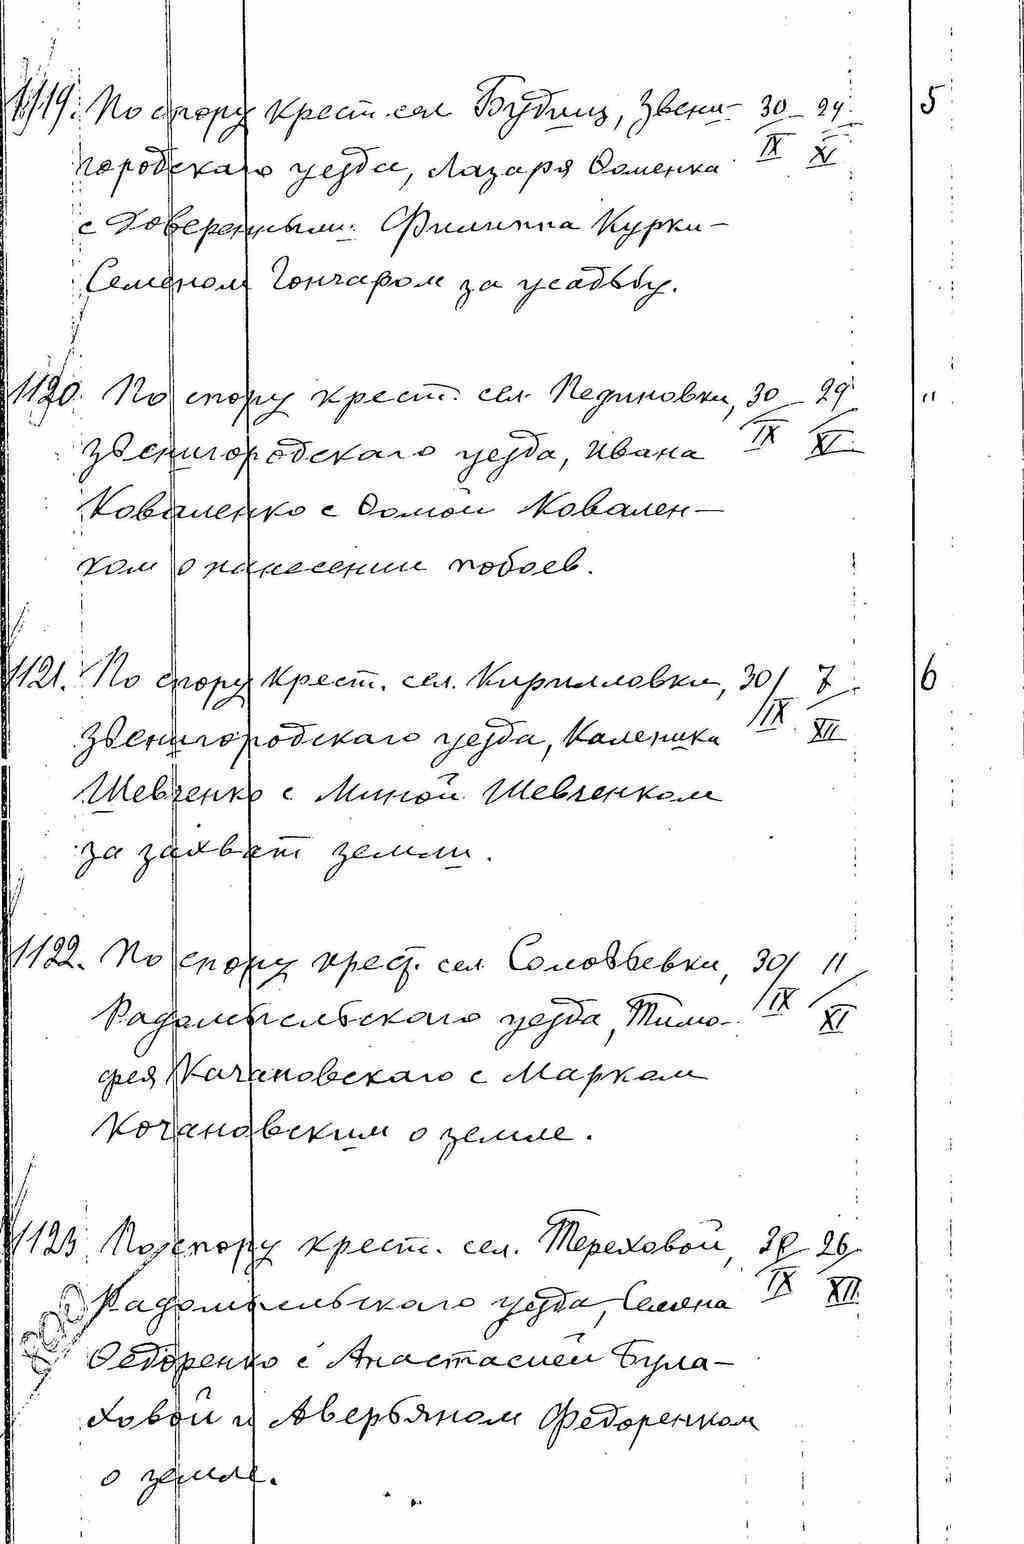 1119. По спору крест. сел Будищ, Звени- 30 29 5
городскаго уезда, Лазаря Фоменка IX XI
с Доверенным Филиппа Курки-
Семеном Гончаром за усадьбу.
1120. По спору крест. сел. Пединовки, 30 29 "
Звенигородскаго уезда, Ивана IX XI
Коваленко с Фомой Ковален-
ком о нанесении побоев.
1121. По спору крест. сел. Кирилловки, 30/ 7 6
Звенигородскаго уезда, Каленика IX XII
Шевченко с Миной Шевченком
за захват земли.
1122. По спору крест. сел. Соловьевки, 30/ 11
Радомысльскаго уезда, Тимо- IX XI
фея Качановскаго с Марком
Кочановским о земле.
1123 По спору крест. сел. Тереховой, 30 26
Радомысльскаго уезда, Семена IX XII
Федоренко с Анастасией Була-
ховой и Аверьяном Федоренком
о земле.